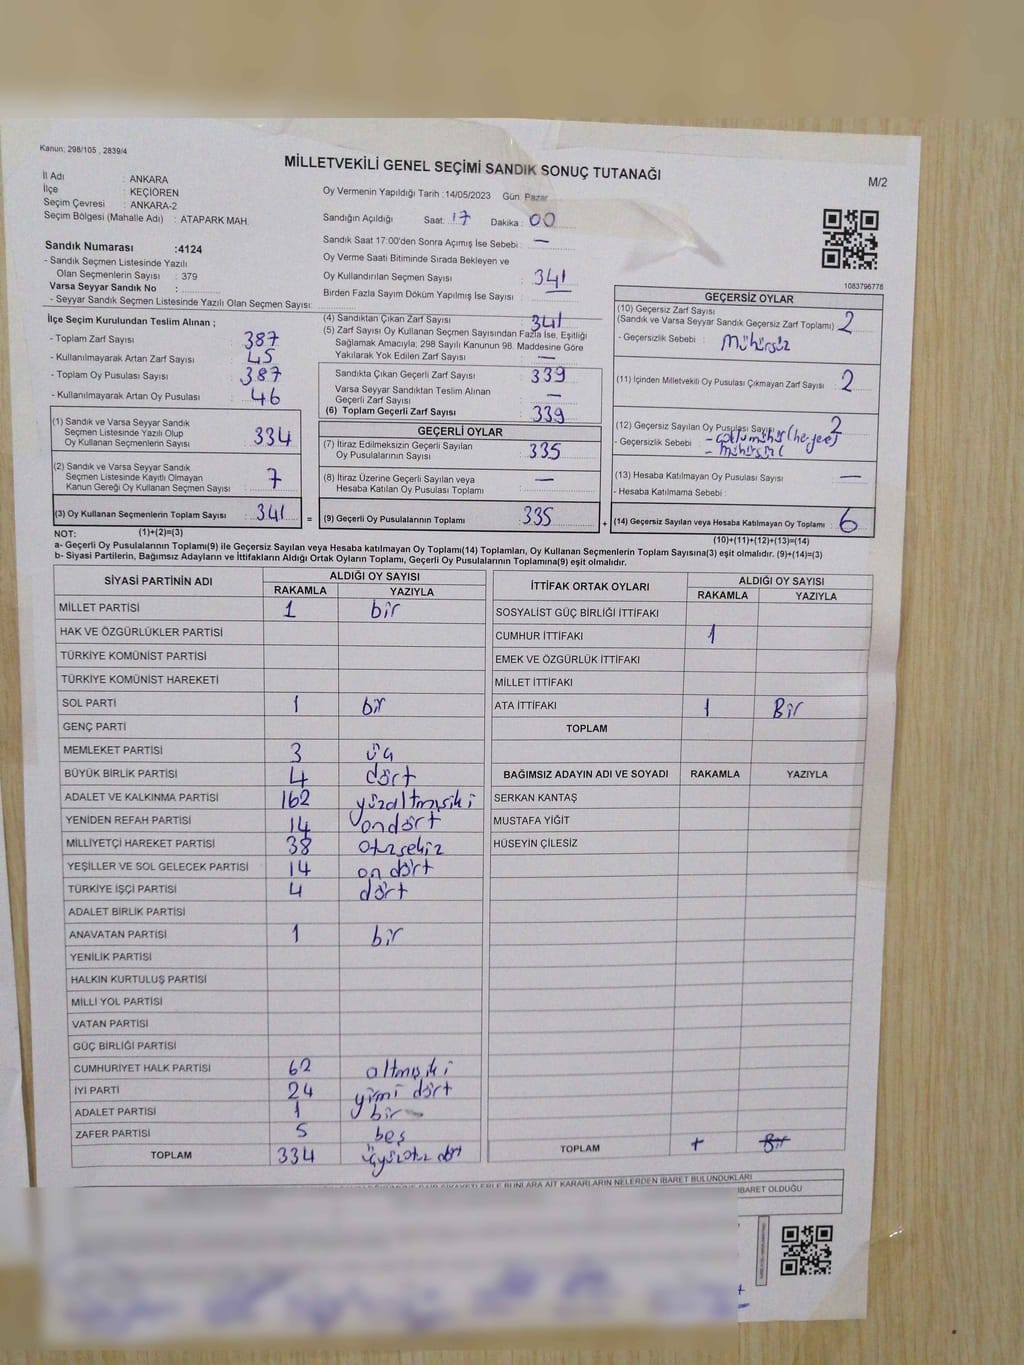 Kanun: 298/105 , 2839/4
MİLLETVEKİLİ GENEL SEÇİMİ SANDIK SONUÇ TUTANAĞI
M/2
İl Adı : ANKARA
İlçe : KEÇİÖREN
Seçim Çevresi : ANKARA-2
Seçim Bölgesi (Mahalle Adı) : ATAPARK MAH.
Sandık Numarası :4124
- Sandık Seçmen Listesinde Yazılı
Olan Seçmenlerin Sayısı : 379
Varsa Seyyar Sandık No :
- Seyyar Sandık Seçmen Listesinde Yazılı Olan Seçmen Sayısı:
Oy Vermenin Yapıldığı Tarih :14/05/2023 Gün: Pazar
Sandığın Açıldığı Saat: 17 Dakika : 00
Sandık Saat 17:00'den Sonra Açımış İse Sebebi : —
Oy Verme Saati Bitiminde Sırada Bekleyen ve
Oy Kullandırılan Seçmen Sayısı : 341
Birden Fazla Sayım Döküm Yapılmış İse Sayısı :
1083796778
İlçe Seçim Kurulundan Teslim Alınan ;
- Toplam Zarf Sayısı : 387
- Kullanılmayarak Artan Zarf Sayısı : 45
- Toplam Oy Pusulası Sayısı : 387
- Kullanılmayarak Artan Oy Pusulası : 46
(1) Sandık ve Varsa Seyyar Sandık
Seçmen Listesinde Yazılı Olup
Oy Kullanan Seçmenlerin Sayısı : 334
(2) Sandık ve Varsa Seyyar Sandık
Seçmen Listesinde Kayıtlı Olmayan
Kanun Gereği Oy Kullanan Seçmen Sayısı : 7
(3) Oy Kullanan Seçmenlerin Toplam Sayısı : 341
(1)+(2)=(3)
(4) Sandıktan Çıkan Zarf Sayısı : 341
(5) Zarf Sayısı Oy Kullanan Seçmen Sayısından Fazla İse, Eşitliği
Sağlamak Amacıyla; 298 Sayılı Kanunun 98. Maddesine Göre
Yakılarak Yok Edilen Zarf Sayısı : —
Sandıkta Çıkan Geçerli Zarf Sayısı : 339
Varsa Seyyar Sandıktan Teslim Alınan
Geçerli Zarf Sayısı : —
(6) Toplam Geçerli Zarf Sayısı : 339
GEÇERLİ OYLAR
(7) İtiraz Edilmeksizin Geçerli Sayılan
Oy Pusulalarının Sayısı : 335
(8) İtiraz Üzerine Geçerli Sayılan veya
Hesaba Katılan Oy Pusulası Toplamı : —
= (9) Geçerli Oy Pusulalarının Toplamı : 335 +
GEÇERSİZ OYLAR
(10) Geçersiz Zarf Sayısı
(Sandık ve Varsa Seyyar Sandık Geçersiz Zarf Toplamı) : 2
- Geçersizlik Sebebi : Mühürsüz
(11) İçinden Milletvekili Oy Pusulası Çıkmayan Zarf Sayısı : 2
(12) Geçersiz Sayılan Oy Pusulası Sayısı : 2
- Geçersizlik Sebebi :
(13) Hesaba Katılmayan Oy Pusulası Sayısı : —
- Hesaba Katılmama Sebebi :
(14) Geçersiz Sayılan veya Hesaba Katılmayan Oy Toplamı : 6
(10)+(11)+(12)+(13)=(14)
NOT:
a- Geçerli Oy Pusulalarının Toplamı(9) ile Geçersiz Sayılan veya Hesaba katılmayan Oy Toplamı(14) Toplamları, Oy Kullanan Seçmenlerin Toplam Sayısına(3) eşit olmalıdır. (9)+(14)=(3)
b- Siyasi Partilerin, Bağımsız Adayların ve İttifakların Aldığı Ortak Oyların Toplamı, Geçerli Oy Pusulalarının Toplamına(9) eşit olmalıdır.
SİYASİ PARTİNİN ADI ALDIĞI OY SAYISI
RAKAMLA YAZIYLA
MİLLET PARTİSİ 1 bir
HAK VE ÖZGÜRLÜKLER PARTİSİ
TÜRKİYE KOMÜNİST PARTİSİ
TÜRKİYE KOMÜNİST HAREKETİ
SOL PARTİ 1 bir
GENÇ PARTİ
MEMLEKET PARTİSİ 3 üç
BÜYÜK BİRLİK PARTİSİ 4 dört
ADALET VE KALKINMA PARTİSİ 162 yüzaltmışiki
YENİDEN REFAH PARTİSİ 14 ondört
MİLLİYETÇİ HAREKET PARTİSİ 38 otuzsekiz
YEŞİLLER VE SOL GELECEK PARTİSİ 14 on dört
TÜRKİYE İŞÇİ PARTİSİ 4 dört
ADALET BİRLİK PARTİSİ
ANAVATAN PARTİSİ 1 bir
YENİLİK PARTİSİ
HALKIN KURTULUŞ PARTİSİ
MİLLİ YOL PARTİSİ
VATAN PARTİSİ
GÜÇ BİRLİĞİ PARTİSİ
CUMHURİYET HALK PARTİSİ 62 altmışiki
İYİ PARTİ 24 yirmi dört
ADALET PARTİSİ 1 bir
ZAFER PARTİSİ 5 beş
TOPLAM 334 üçyüzotuz dört
İTTİFAK ORTAK OYLARI ALDIĞI OY SAYISI
RAKAMLA YAZIYLA
SOSYALİST GÜÇ BİRLİĞİ İTTİFAKI
CUMHUR İTTİFAKI 1
EMEK VE ÖZGÜRLÜK İTTİFAKI
MİLLET İTTİFAKI
ATA İTTİFAKI 1 Bir
TOPLAM
BAĞIMSIZ ADAYIN ADI VE SOYADI RAKAMLA YAZIYLA
SERKAN KANTAŞ
MUSTAFA YİĞİT
HÜSEYİN ÇİLESİZ
TOPLAM
BUNLARA AİT KARARLARIN NELERDEN İBARET BULUNDUKLARI
İBARET OLDUĞU